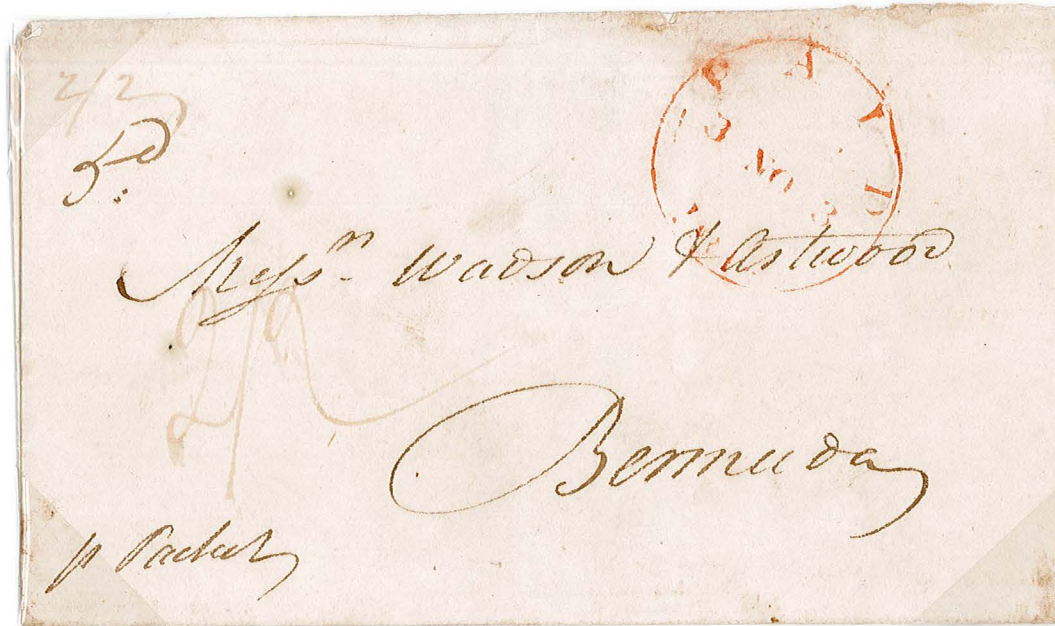 2/2
Pd
PAID
NO 3
Messrs Wadson & Astwood
2/2
Bermuda
p Packet